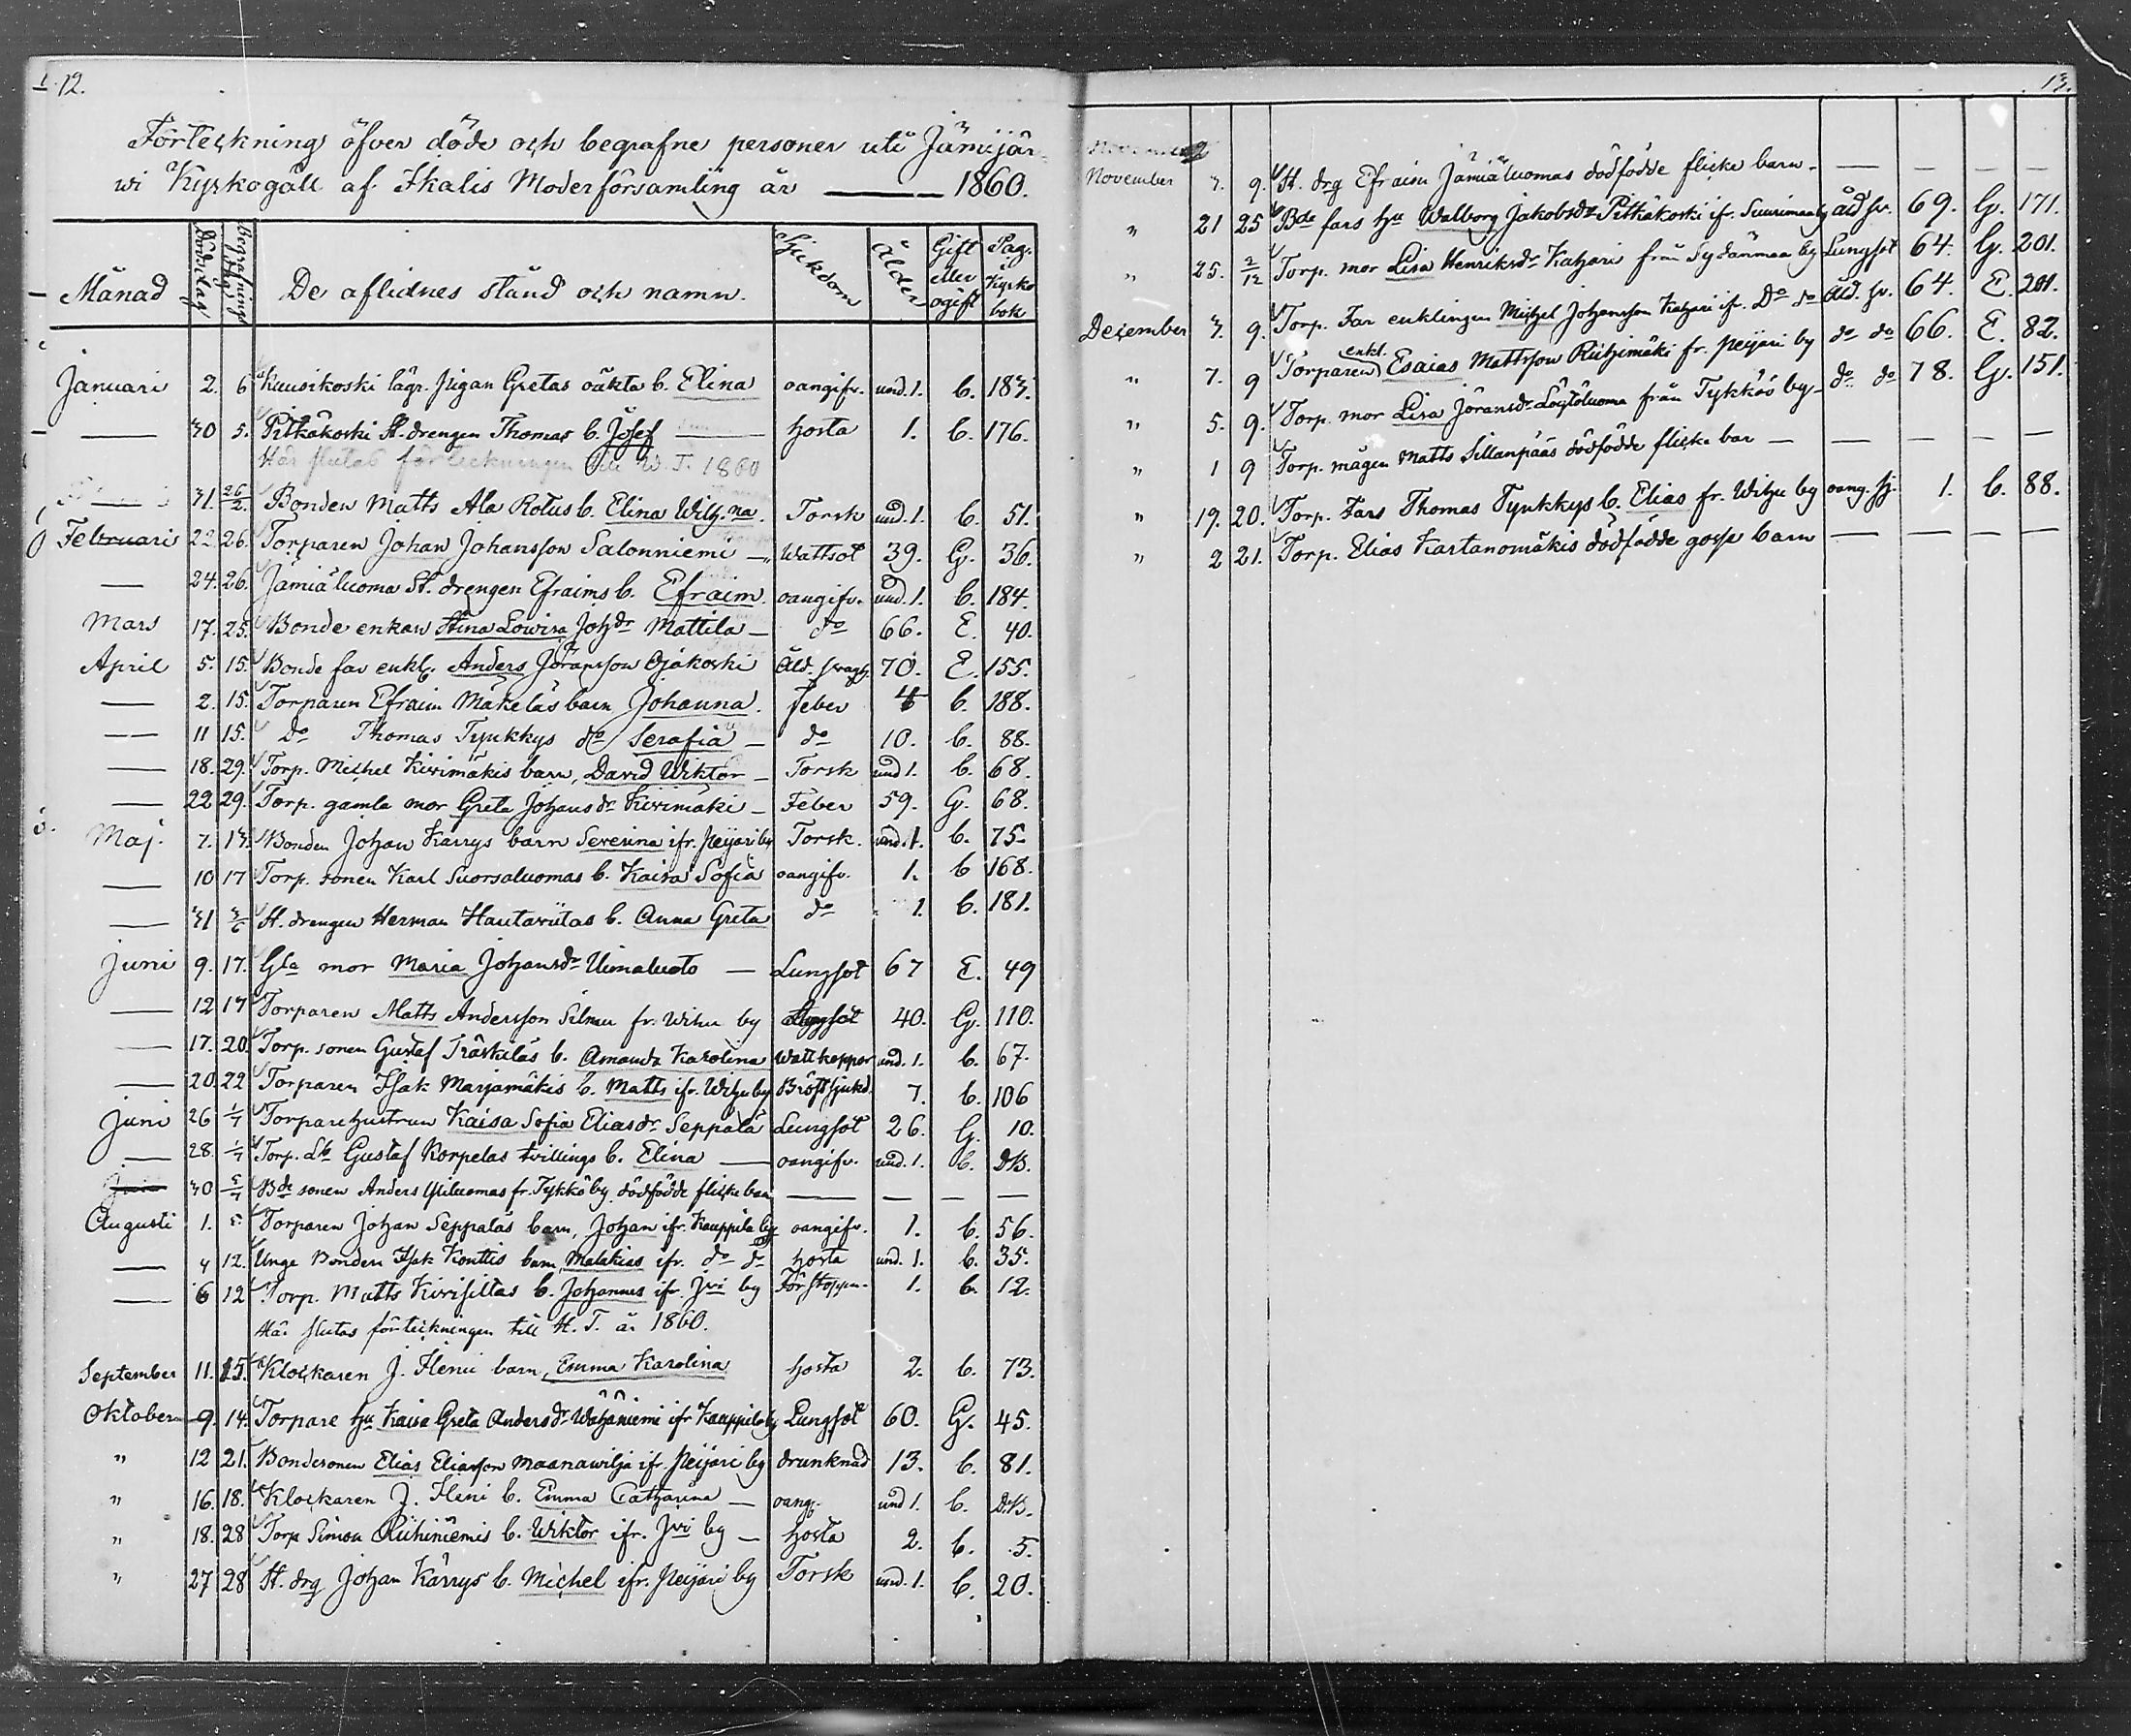 12.
Förteckning öfver döde och begrafne personer uti Jämijär-
wi Kyrkogäll af Ikalis Moderförsamling år — 1860.
Månad Dödsdag Begrafnings dag De aflidnes stånd och namn. Sjukdom Ålder Gift eller ogift Pag. Kyrko bok
Januari 2. 6 Kuusikoski lägr. pigan Gretas oäkta b. Elina oangifv. und. 1. b. 183.
— 30 5. Pitkäkoski St. drengen Thomas b. Josef — hosta 1. b. 176.
Här slutas förteckningen till W. T. 1860
31. 26/2. Bonden Matts Ala Rotus b. Elina Wilh.na. Torsk und. 1. b. 51.
Februari 22. 26. Torparen Johan Johansson Salonniemi — Wattsot 39. G. 36.
— 24. 26. Jämiäluoma St. drengen Efraims b. Efraim. oangifv. und. 1. b. 184.
Mars 17. 25. Bonde enkan Stina Lowisa Joh.dr Mattila — do 66. E. 40.
April 5. 15. Bonde far enkl. Anders Jöransson Ojakoski Åld. svagh. 70. E. 155.
— 2. 15. Torparen Efraim Mäkeläs barn Johanna. feber 4 b. 188.
— 11 15. do Thomas Tyukkys do Serafia — do 10. b. 88.
— 18. 29. Torp. Michel Kivimäkis barn, David Wiktor — Torsk und 1. b. 68.
— 22 29. Torp. gamla mor Greta Johansdr Kivimäki — Feber 59. G. 68.
Maj. 7. 13. Bonden Johan Karrys barn Severina ifr. Peijari by Torsk. und. 1. b. 75
— 10 17 Torp. sonen Karl Suorsaluomas b. Kaisa Sofia oangifv. 1. b 168.
— 31 3/6 St. drengen Herman Hautaviitas b. Anna Greta do 1. b. 181.
Juni 9. 17. Gla mor Maria Johansdr Uimaluoto — Lungsot 67 E. 49
— 12 17 Torparen Matts Andersson Silmu fr. Wihu by Lungsot 40. G. 110.
— 17. 20. Torp. sonen Gustaf Träskiläs b. Amanda Karolina Wattkoppor und. 1. b. 67.
— 20. 22 Torparen Isak Marjamäkis b. Matts ifr. Wihu by Bröstsjukd. 7. b. 106
Juni 26 1/7 Torparehustrun Kaisa Sofia Eliasdr Seppälä Lungsot 26. G. 10.
— 28. 1/7 Torp. Gustaf Korpelas tvillings b. Elina — oangifv. und. 1. b. DB.
30 5/7 Bde sonen Anders Yliluomas fr. Tykkö by dödfödde flicke barn — — — —
Augusti 1. 5. Torparen Johan Seppäläs barn, Johan ifr. Kauppila by oangifv. 1. b. 56.
— 4 12. Unga Bonden Isak Konttis barn, Malakias ifr. do do hosta und. 1. b. 35.
— 6 12 Torp. Matts Kivisiltas b. Johannes ifr. Jvi by Förstoppn. 1. b. 12.
Här slutas förteckningen till H. T. år 1860.
September 11. 15. Klockaren J. Fleni barn, Emma Karolina hosta 2. b. 73.
Oktober 9. 14. Torpare hu Kaisa Greta Andersdr Wähäniemi ifr Kauppila by Lungsot 60. G. 45.
" 12 21. Bondesonen Elias Eliasson Maanawilja ifr. Peijari by drunknad 13. b. 81.
" 16. 18. Klockaren J. Fleni b. Emma Catharina — oang. und 1. b. DB.
" 18. 28 Torp Simon Riihiniemis b. Wiktor ifr. Jvi by — hosta 2. b. 5.
" 27 28 St. drg Johan Kärrys b. Michel ifr. Peijari by Torsk und. 1. b. 20.
13.
November 7. 9. St. drg Efraim Jämiäluomas dödfödde flicke barn — — — —
" 21 25 Bde fars hu Walborg Jakobsdr Pitkäkoski ifr. Suurimaa by åld sv. 69. G. 171.
" 25. 2/12 Torp. mor Lisa Henriksdr Katjari från Sydänmaa by Lungsot 64. G. 201.
December 3. 9. Torp. Far enklingen Michel Johansson Katjari ifr. Do do åld. sv. 64. E. 201.
" 7. 9 Torparen enkl. Esaias Mattsson Riihimäki fr. Peijari by do do 66. E. 82.
" 5. 9. Torp. mor Lisa Jöransdr Löytöluoma från Tykköö by — do do 78. G. 151.
" 1 9 Torp. mågen Matts Sillanpääs dödfödde flicke bar — — — — —
" 19. 20. Torp. Fars Thomas Tyukkys b. Elias fr. Wihu by oang. sj. 1. b. 88.
" 2 21. Torp. Elias Kartanomäkis dödfödde gosse barn — — — —